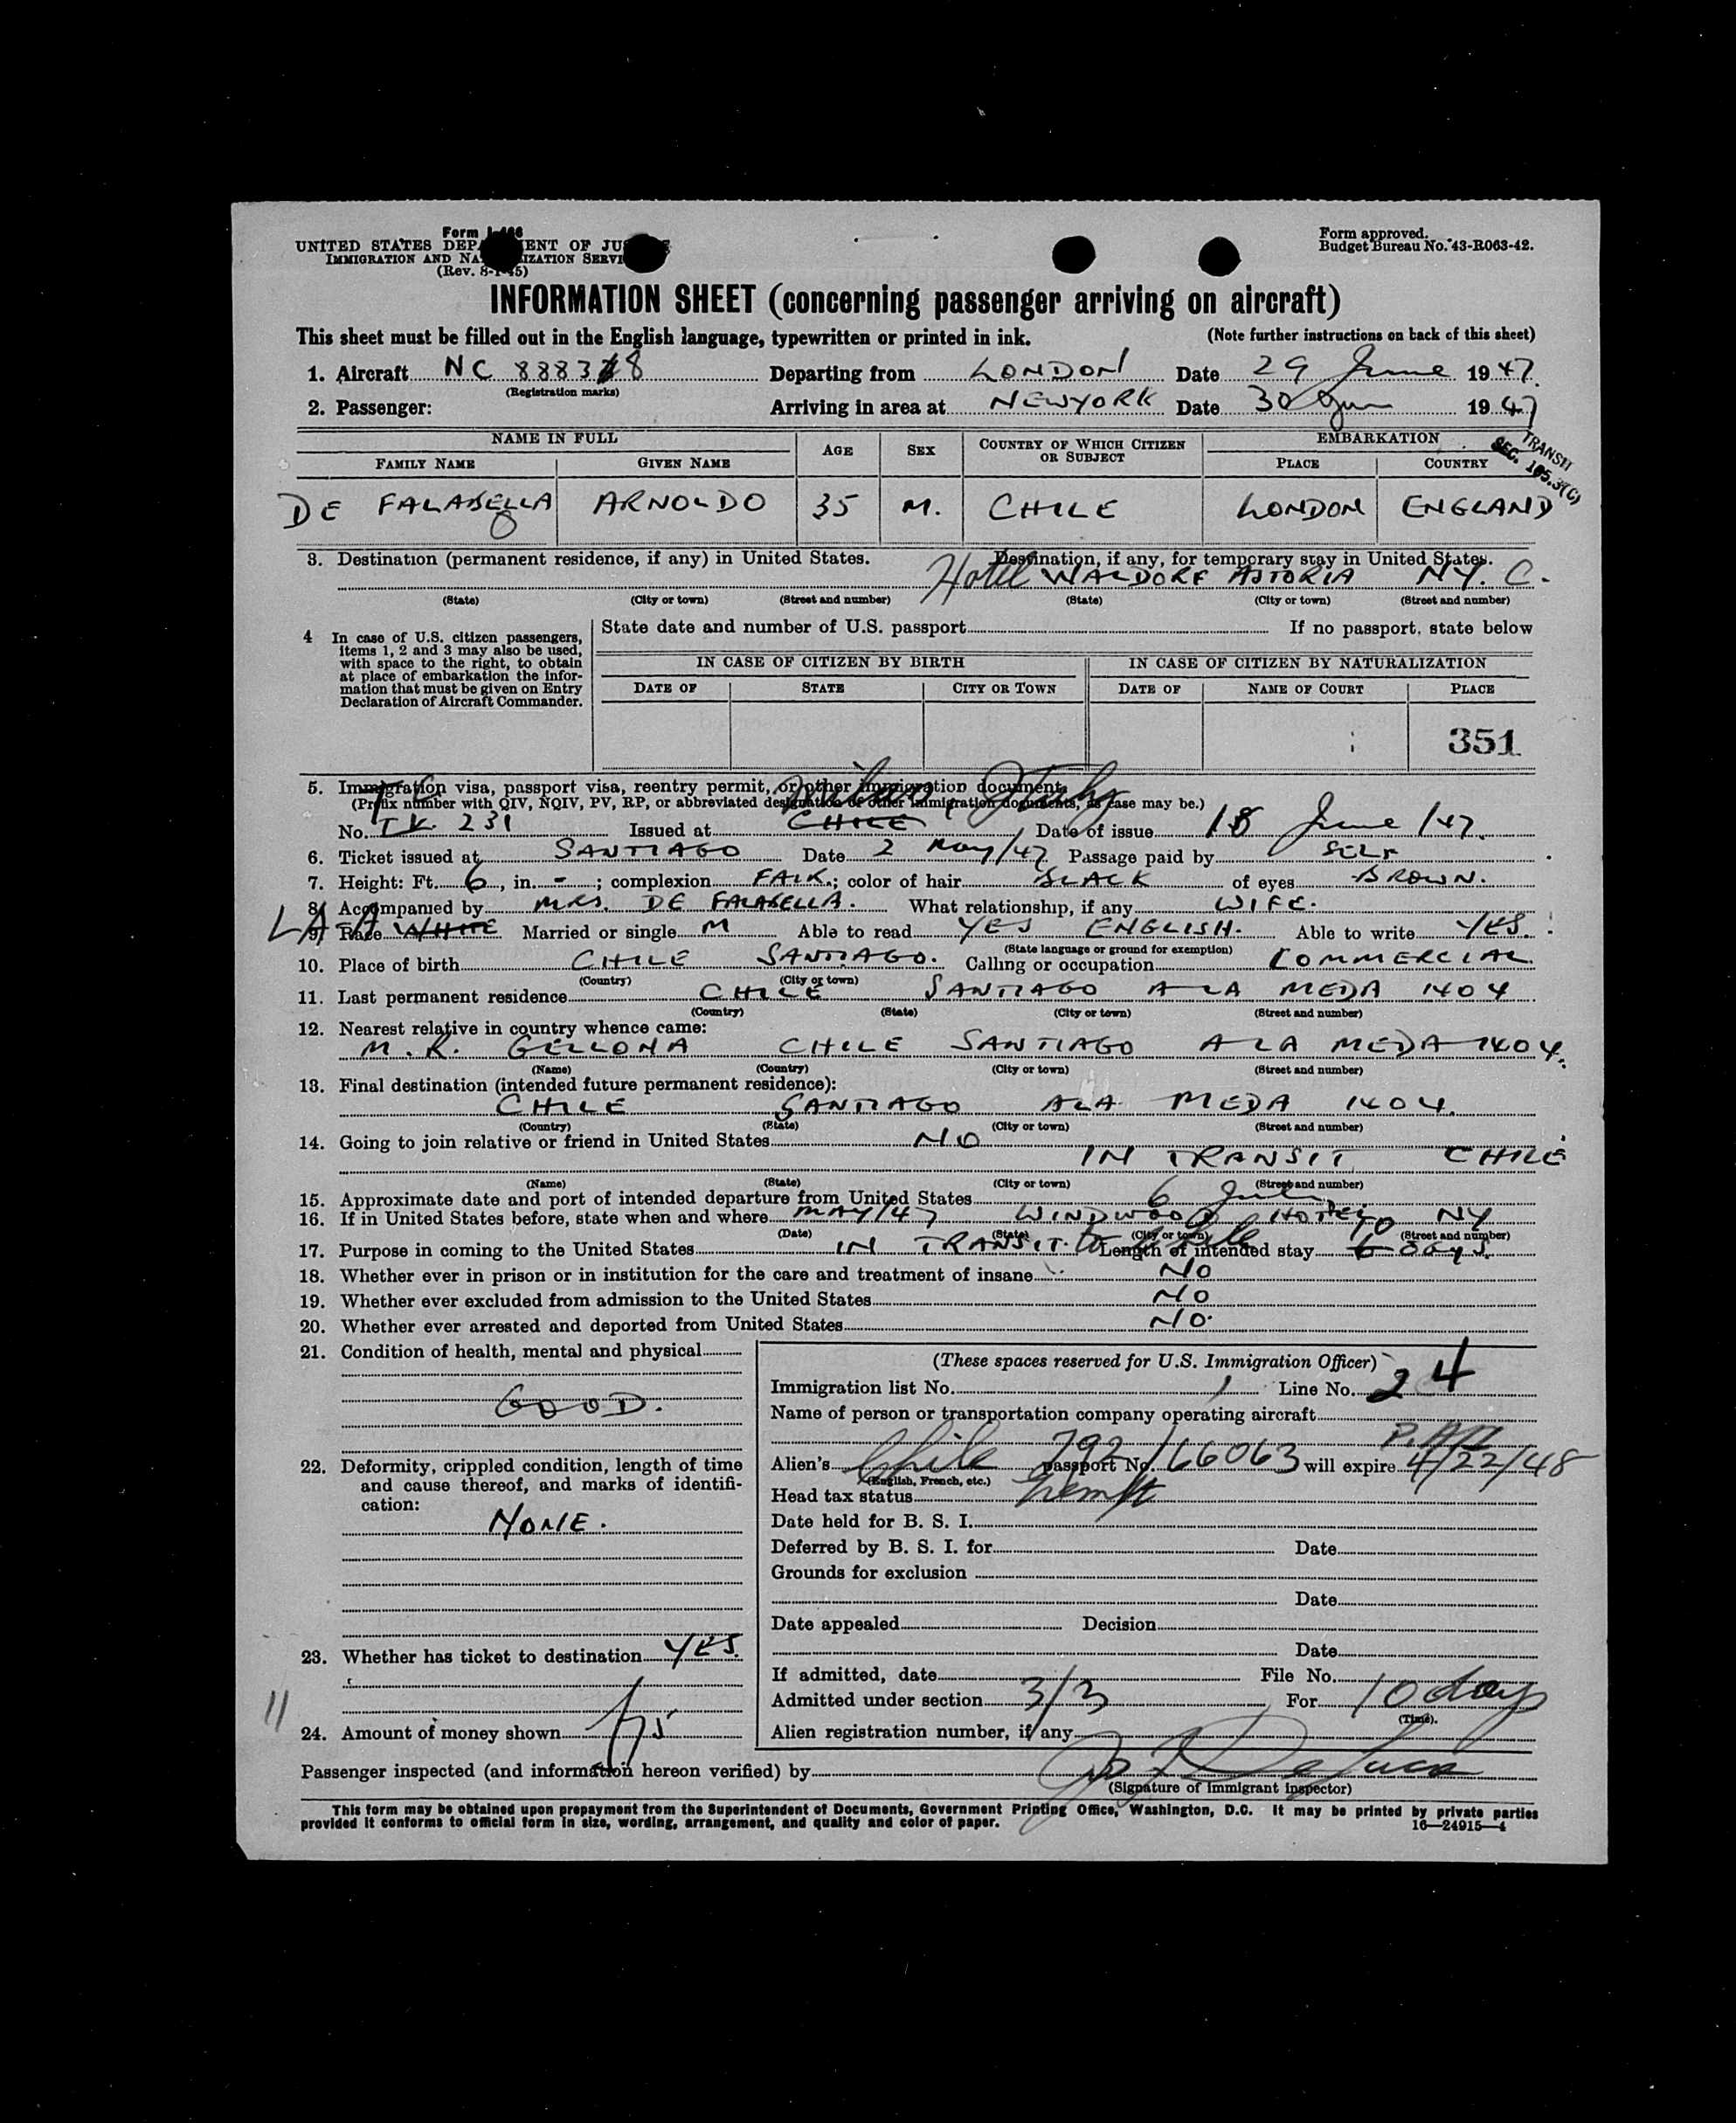 Form I-466
UNITED STATES DEPARTMENT OF JUSTICE
IMMIGRATION AND NATURALIZATION SERVICE
(Rev. 8-1-45)
Form approved.
Budget Bureau No. 43-R063-42.
INFORMATION SHEET (concerning passenger arriving on aircraft)
This sheet must be filled out in the English language, typewritten or printed in ink. (Note further instructions on back of this sheet)
1. Aircraft NC 88838 Departing from LONDON Date 29 June 1947.
(Registration marks)
2. Passenger: Arriving in area at NEWYORK Date 30 Jun 1947
NAME IN FULL AGE SEX COUNTRY OF WHICH CITIZEN OR SUBJECT EMBARKATION
FAMILY NAME GIVEN NAME PLACE COUNTRY
TRANSIT
SEC. 105.3(C)
DE FALABELLA ARNOLDO 35 M. CHILE LONDON ENGLAND
3. Destination (permanent residence, if any) in United States. Destination, if any, for temporary stay in United States.
Hotel WALDORF ASTORIA NY. C.
(State) (City or town) (Street and number) (State) (City or town) (Street and number)
4 In case of U.S. citizen passengers, items 1, 2 and 3 may also be used, with space to the right, to obtain at place of embarkation the information that must be given on Entry Declaration of Aircraft Commander.
State date and number of U.S. passport If no passport, state below
IN CASE OF CITIZEN BY BIRTH IN CASE OF CITIZEN BY NATURALIZATION
DATE OF STATE CITY OR TOWN DATE OF NAME OF COURT PLACE
351
5. Immigration visa, passport visa, reentry permit, or other immigration document,
(Prefix number with QIV, NQIV, PV, RP, or abbreviated designation of other immigration documents, as case may be.)
Milan, Italy
No. TV. 231 Issued at CHILE Date of issue 18 June/47.
6. Ticket issued at SANTIAGO Date 2 May/47 Passage paid by SELF
7. Height: Ft. 6, in. -; complexion FAIR; color of hair BLACK of eyes BROWN.
8. Accompanied by MRS. DE FALABELLA. What relationship, if any WIFE.
9. Race WHITE Married or single M Able to read YES ENGLISH. Able to write YES.
(State language or ground for exemption)
10. Place of birth CHILE SANTIAGO. Calling or occupation COMMERCIAL
(Country) (City or town)
11. Last permanent residence CHILE SANTIAGO ALA MEDA 1404
(Country) (State) (City or town) (Street and number)
12. Nearest relative in country whence came:
M. R. GELLONA CHILE SANTIAGO ALA MEDA 1404.
(Name) (Country) (City or town) (Street and number)
13. Final destination (intended future permanent residence):
CHILE SANTIAGO ALA MEDA 1404.
(Country) (State) (City or town) (Street and number)
14. Going to join relative or friend in United States NO
IN TRANSIT CHILE
(Name) (State) (City or town) (Street and number)
15. Approximate date and port of intended departure from United States 6 July
16. If in United States before, state when and where MAY/47 WINDWOOD HOTEL NY
(Date) (State) (City or town) (Street and number)
17. Purpose in coming to the United States IN TRANSIT to Chile Length of intended stay 10 days.
18. Whether ever in prison or in institution for the care and treatment of insane NO
19. Whether ever excluded from admission to the United States NO
20. Whether ever arrested and deported from United States NO.
21. Condition of health, mental and physical
GOOD.
22. Deformity, crippled condition, length of time and cause thereof, and marks of identification:
NONE.
23. Whether has ticket to destination YES.
11
24. Amount of money shown
(These spaces reserved for U.S. Immigration Officer)
Immigration list No. 1 Line No. 24
Name of person or transportation company operating aircraft
P.AA
Alien's Chile passport No. 792/66063 will expire 4/22/48
(English, French, etc.)
Head tax status Exempt
Date held for B. S. I.
Deferred by B. S. I. for Date
Grounds for exclusion
Date
Date appealed Decision
Date
If admitted, date File No.
Admitted under section 3/3 For 10 days
(Time).
Alien registration number, if any
Passenger inspected (and information hereon verified) by
(Signature of Immigrant Inspector)
This form may be obtained upon prepayment from the Superintendent of Documents, Government Printing Office, Washington, D.C. It may be printed by private parties
provided it conforms to official form in size, wording, arrangement, and quality and color of paper. 16—24915-4